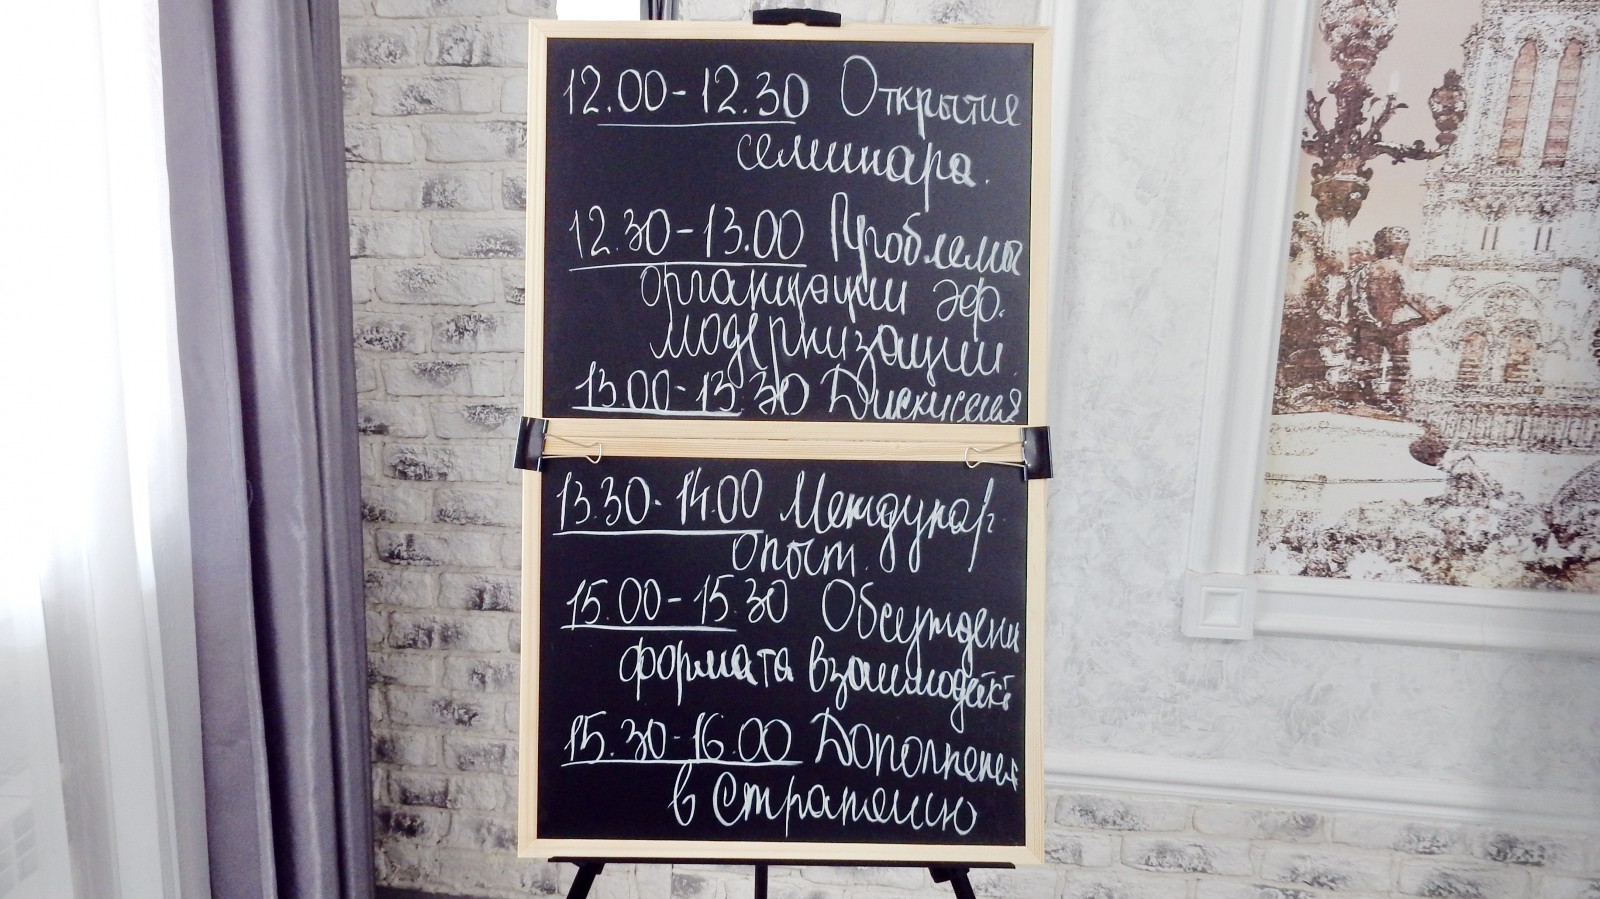 12.00-12.30 Открытие
семинара.
12.30-13.00 Проблемы
организации эф.
модернизации.
13.00-13.30 Дискуссия
13.30-14.00 Междунар.
опыт.
15.00-15.30 Обсуждени
формата взаимодейст
15.30-16.00 Дополнения
в стратегию